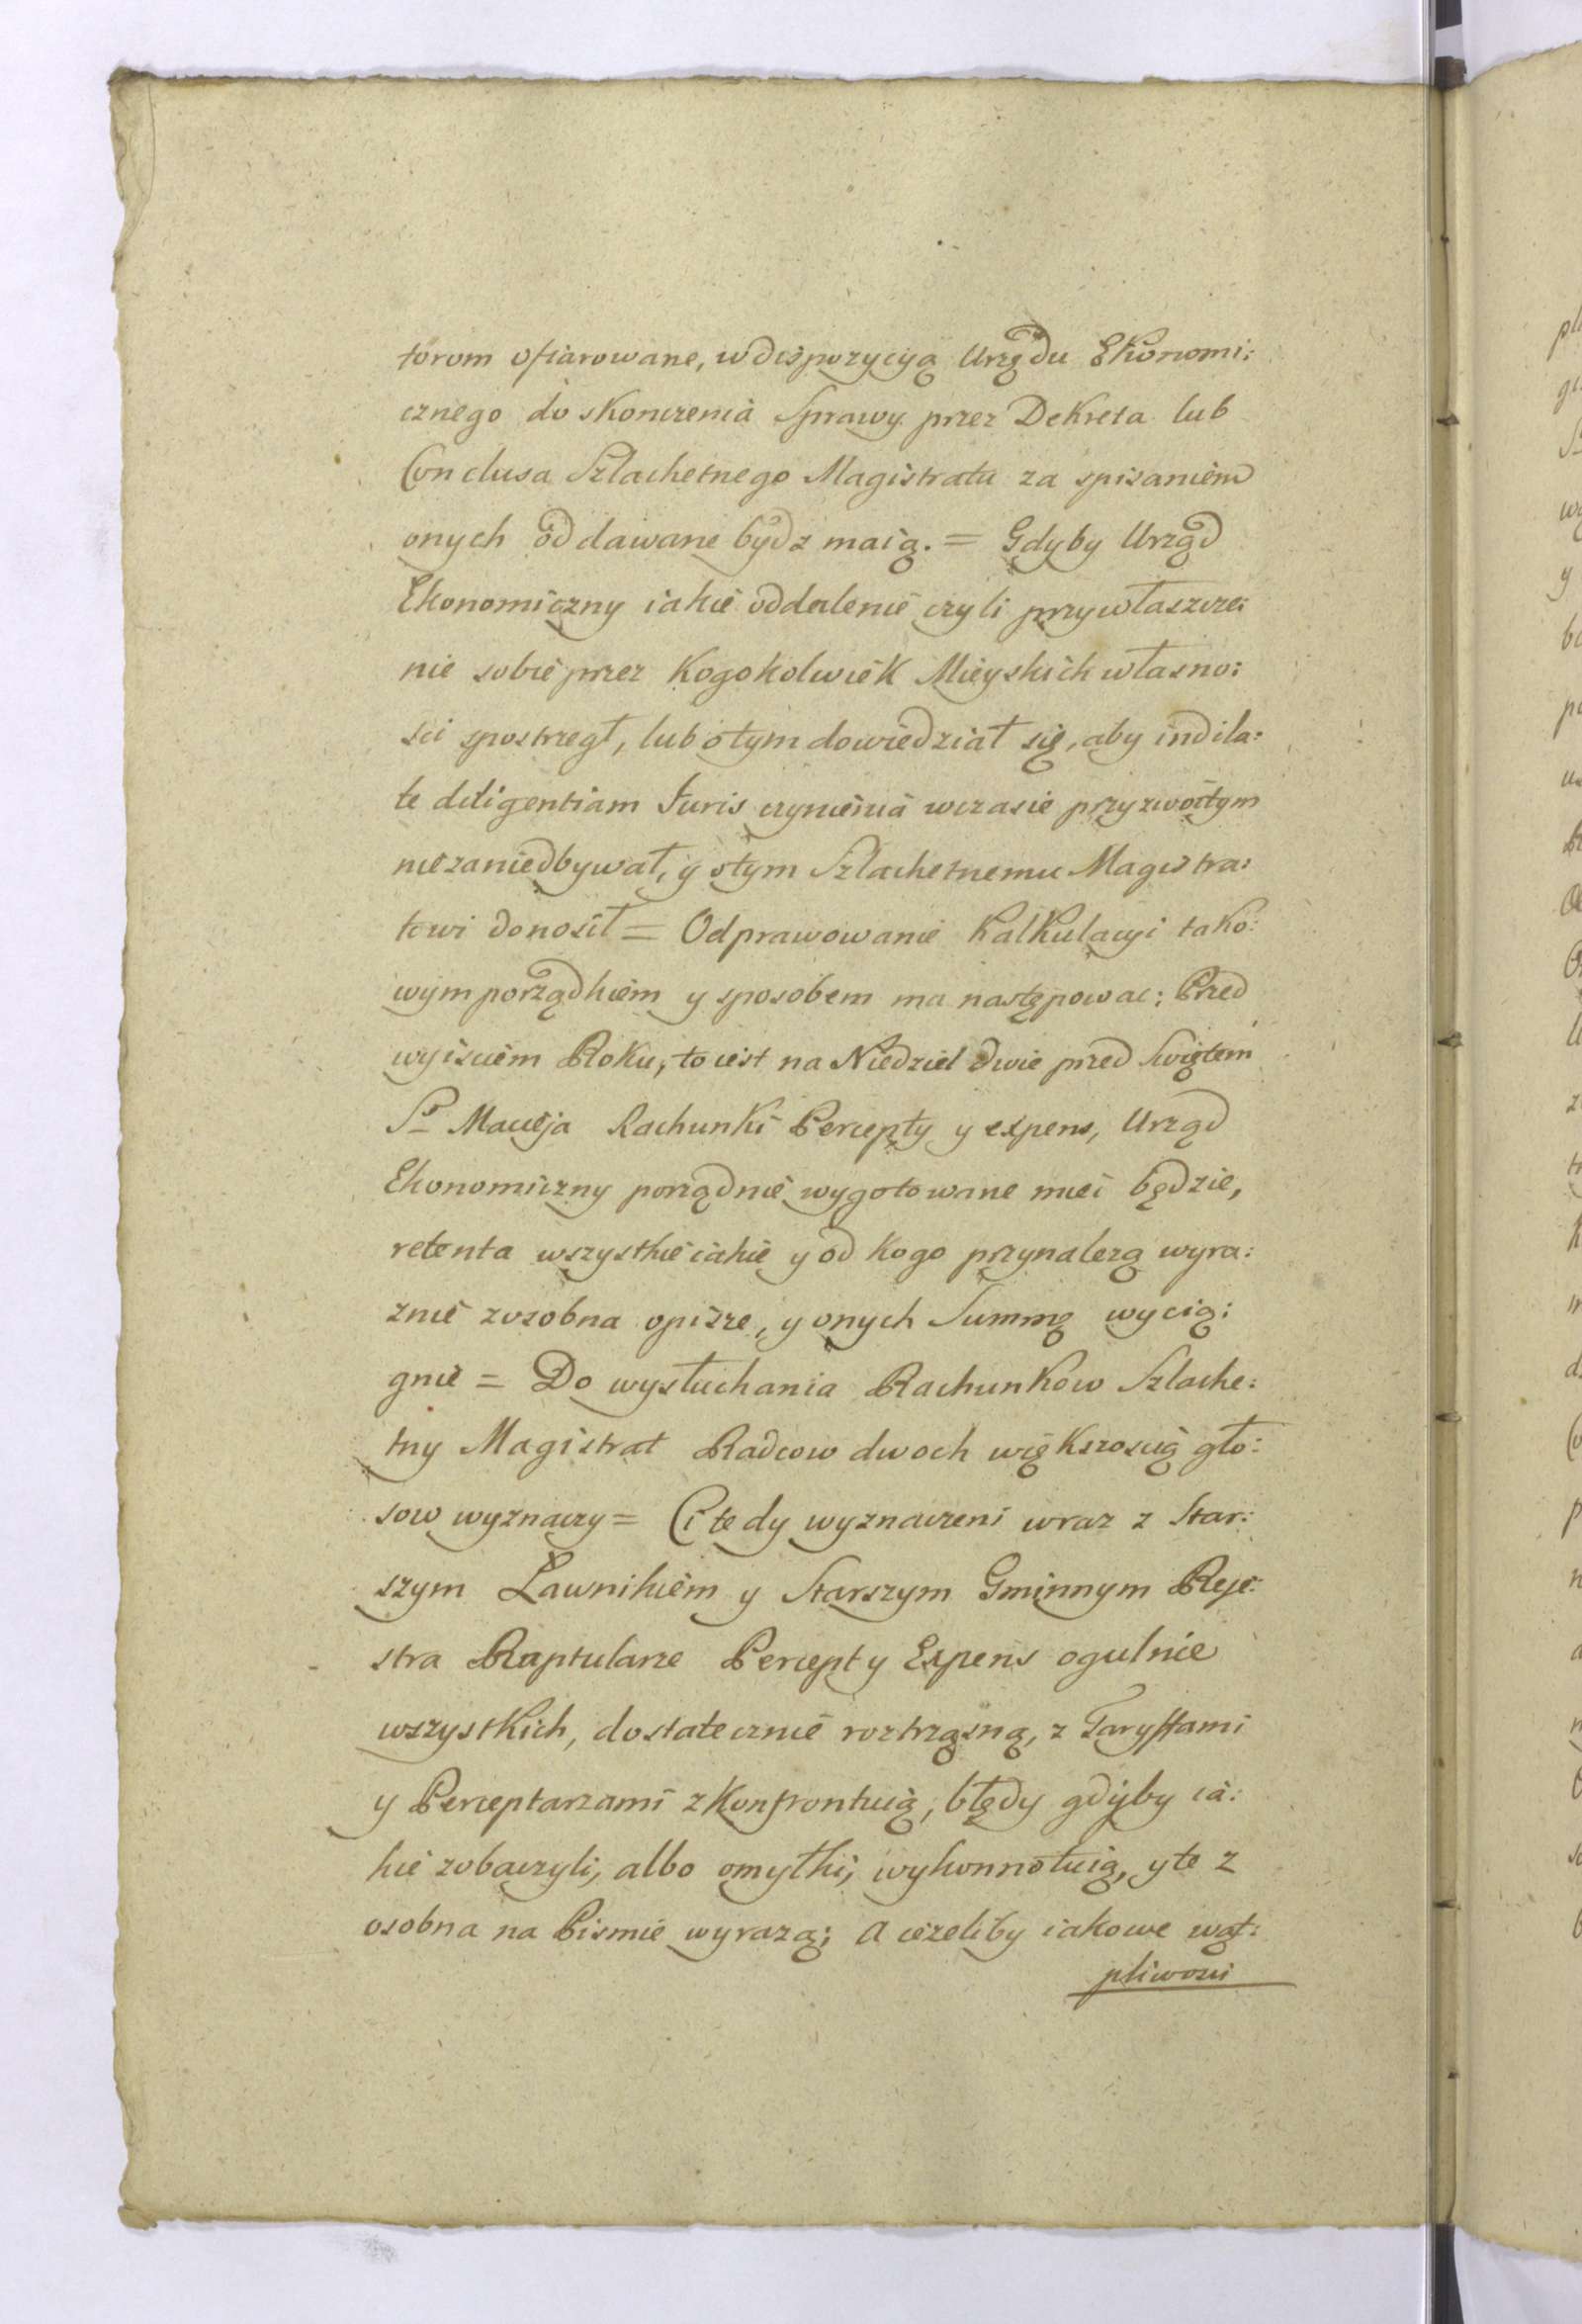 torom ofiarowane, w dispozycyą Urzędu Ekonomi:
cznego do skonczenia Sprawy przez Dekreta lub
Conclusa Szlachetnego Magistratu za spisaniem
onych oddawane bydz maią. = Gdyby Urząd
Ekonomiczny iakie oddalenie czyli przywłaszcze:
nie sobie przez kogokolwiek Mieyskich własno:
sci spostrzegł, lub o tym dowiedział się, aby indila:
te diligentiam Juris czynienia w czasie przyzwoitym
niezaniedbywał, y o tym Szlachetnemu Magistra:
towi donosił = Odprawowanie Kalkulacyi tako:
wym porządkiem y sposobem ma następowac; Przed
wyisciem Roku, to iest na Niedziel dwie przed Swiętem
So Macieja Rachunki Percepty y expens, Urząd
Ekonomiczny porządnie wygotowane miec będzie,
retenta wszystkie iakie y od kogo przynalezą wyra:
znie zosobna opisze, y onych Summę wycią:
gnie = Do wysłuchania Rachunkow Szlache:
tny Magistrat Radcow dwoch większoscią gło:
sow wyznaczy = Ci tedy wyznaczeni wraz z Star:
szym Ławnikiem y Starszym Gminnym Reje:
stra Raptularze Percept y Expens ogulnie
wszystkich, dostatecznie roztrząsną, z Taryffami
y Perceptarzami zkonfrontuią, błędy gdyby ia:
kie zobaczyli, albo omyłki, wykonnotuią, y te z
osobna na Pismie wyrazą; A iezeliby iakowe wąt:
pliwosci